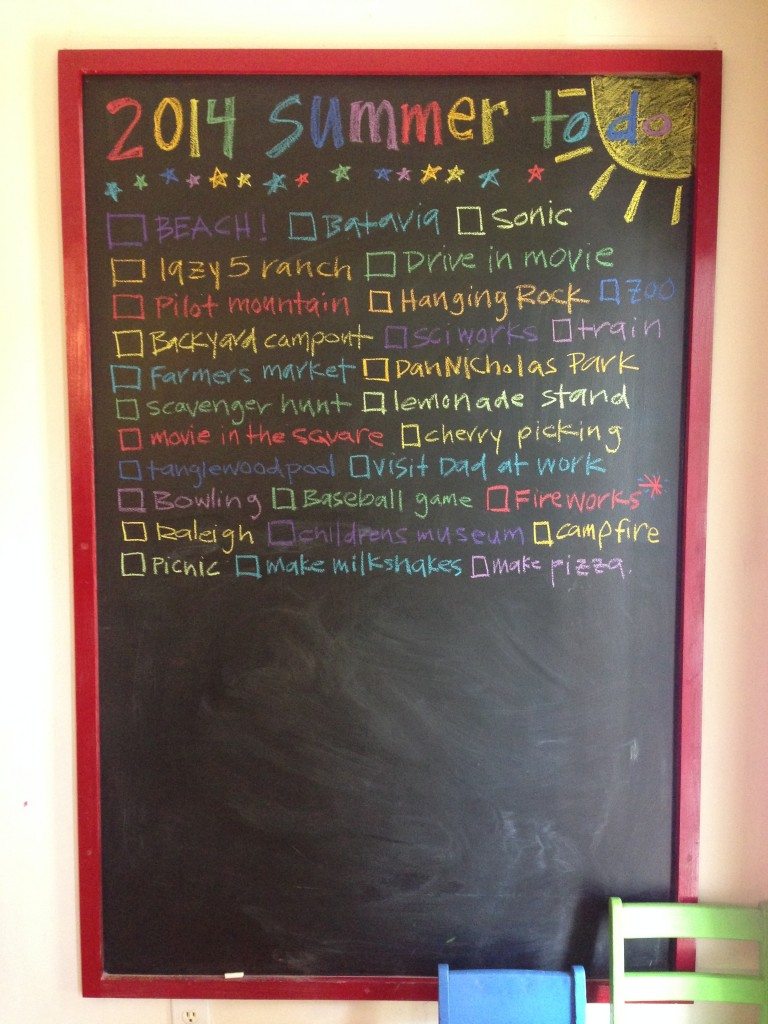 2014 Summer to do
BEACH! Batavia Sonic
lazy 5 ranch Drive in movie
Pilot mountain Hanging Rock Zoo
Backyard campout sciworks train
Farmers market Dan Nicholas Park
scavenger hunt lemonade stand
movie in the square cherry picking
tanglewood pool visit Dad at work
Bowling Baseball game Fireworks
Raleigh childrens museum campfire
Picnic make milkshakes make pizza.